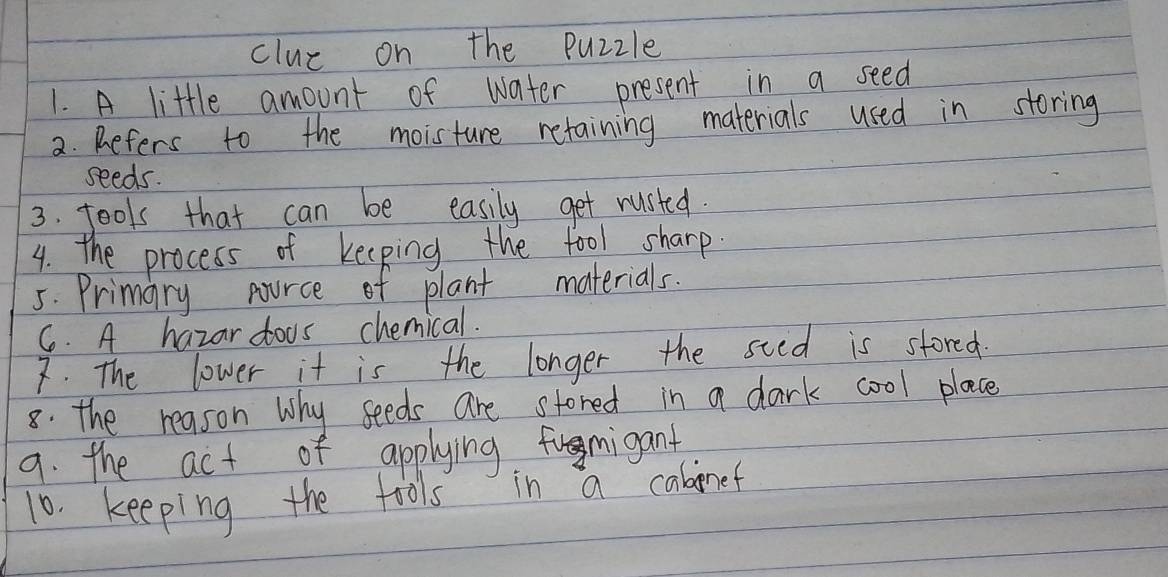 Clue on the Puzzle
1. A little amount of water present in a seed
2. Refers to the moisture retaining materials used in storing
seeds.
3. Tools that can be easily get rusted.
4. The process of keeping the tool sharp.
5. Primary source of plant materials.
6. A hazardous chemical.
7. The lower it is the longer the seed is stored.
8. the reason why seeds are stored in a dark cool place
9. the act of applying fugmigant
10. keeping the tools in a cabinet